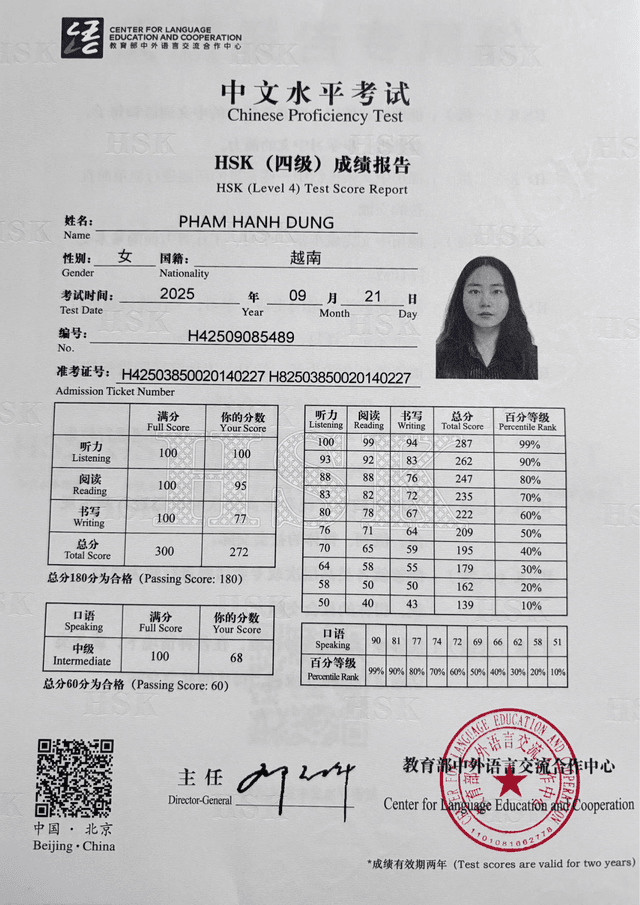 CENTER FOR LANGUAGE
EDUCATION AND COOPERATION
教育部中外语言交流合作中心
中文水平考试
Chinese Proficiency Test
HSK（四级）成绩报告
HSK (Level 4) Test Score Report
姓名: PHAM HANH DUNG
Name
性别: 女 国籍: 越南
Gender Nationality
考试时间: 2025 年 09 月 21 日
Test Date Year Month Day
编号: H42509085489
No.
准考证号: H42503850020140227 H82503850020140227
Admission Ticket Number
满分 你的分数
Full Score Your Score
听力 100 100
Listening
阅读 100 95
Reading
书写 100 77
Writing
总分 300 272
Total Score
总分180分为合格 (Passing Score: 180)
听力 阅读 书写 总分 百分等级
Listening Reading Writing Total Score Percentile Rank
100 99 94 287 99%
93 92 83 262 90%
88 88 76 247 80%
83 82 72 235 70%
80 78 67 222 60%
76 71 64 209 50%
70 65 59 195 40%
64 58 55 179 30%
58 50 50 162 20%
50 40 43 139 10%
口语 满分 你的分数
Speaking Full Score Your Score
中级 100 68
Intermediate
总分60分为合格 (Passing Score: 60)
口语 90 81 77 74 72 69 66 62 58 51
Speaking
百分等级 99% 90% 80% 70% 60% 50% 40% 30% 20% 10%
Percentile Rank
中国·北京
Beijing·China
主任
Director-General
教育部中外语言交流合作中心
Center for Language Education and Cooperation
CENTER FOR LANGUAGE EDUCATION AND COOPERATION
教育部中外语言交流合作中心
1101081662778
*成绩有效期两年 (Test scores are valid for two years)
HSK